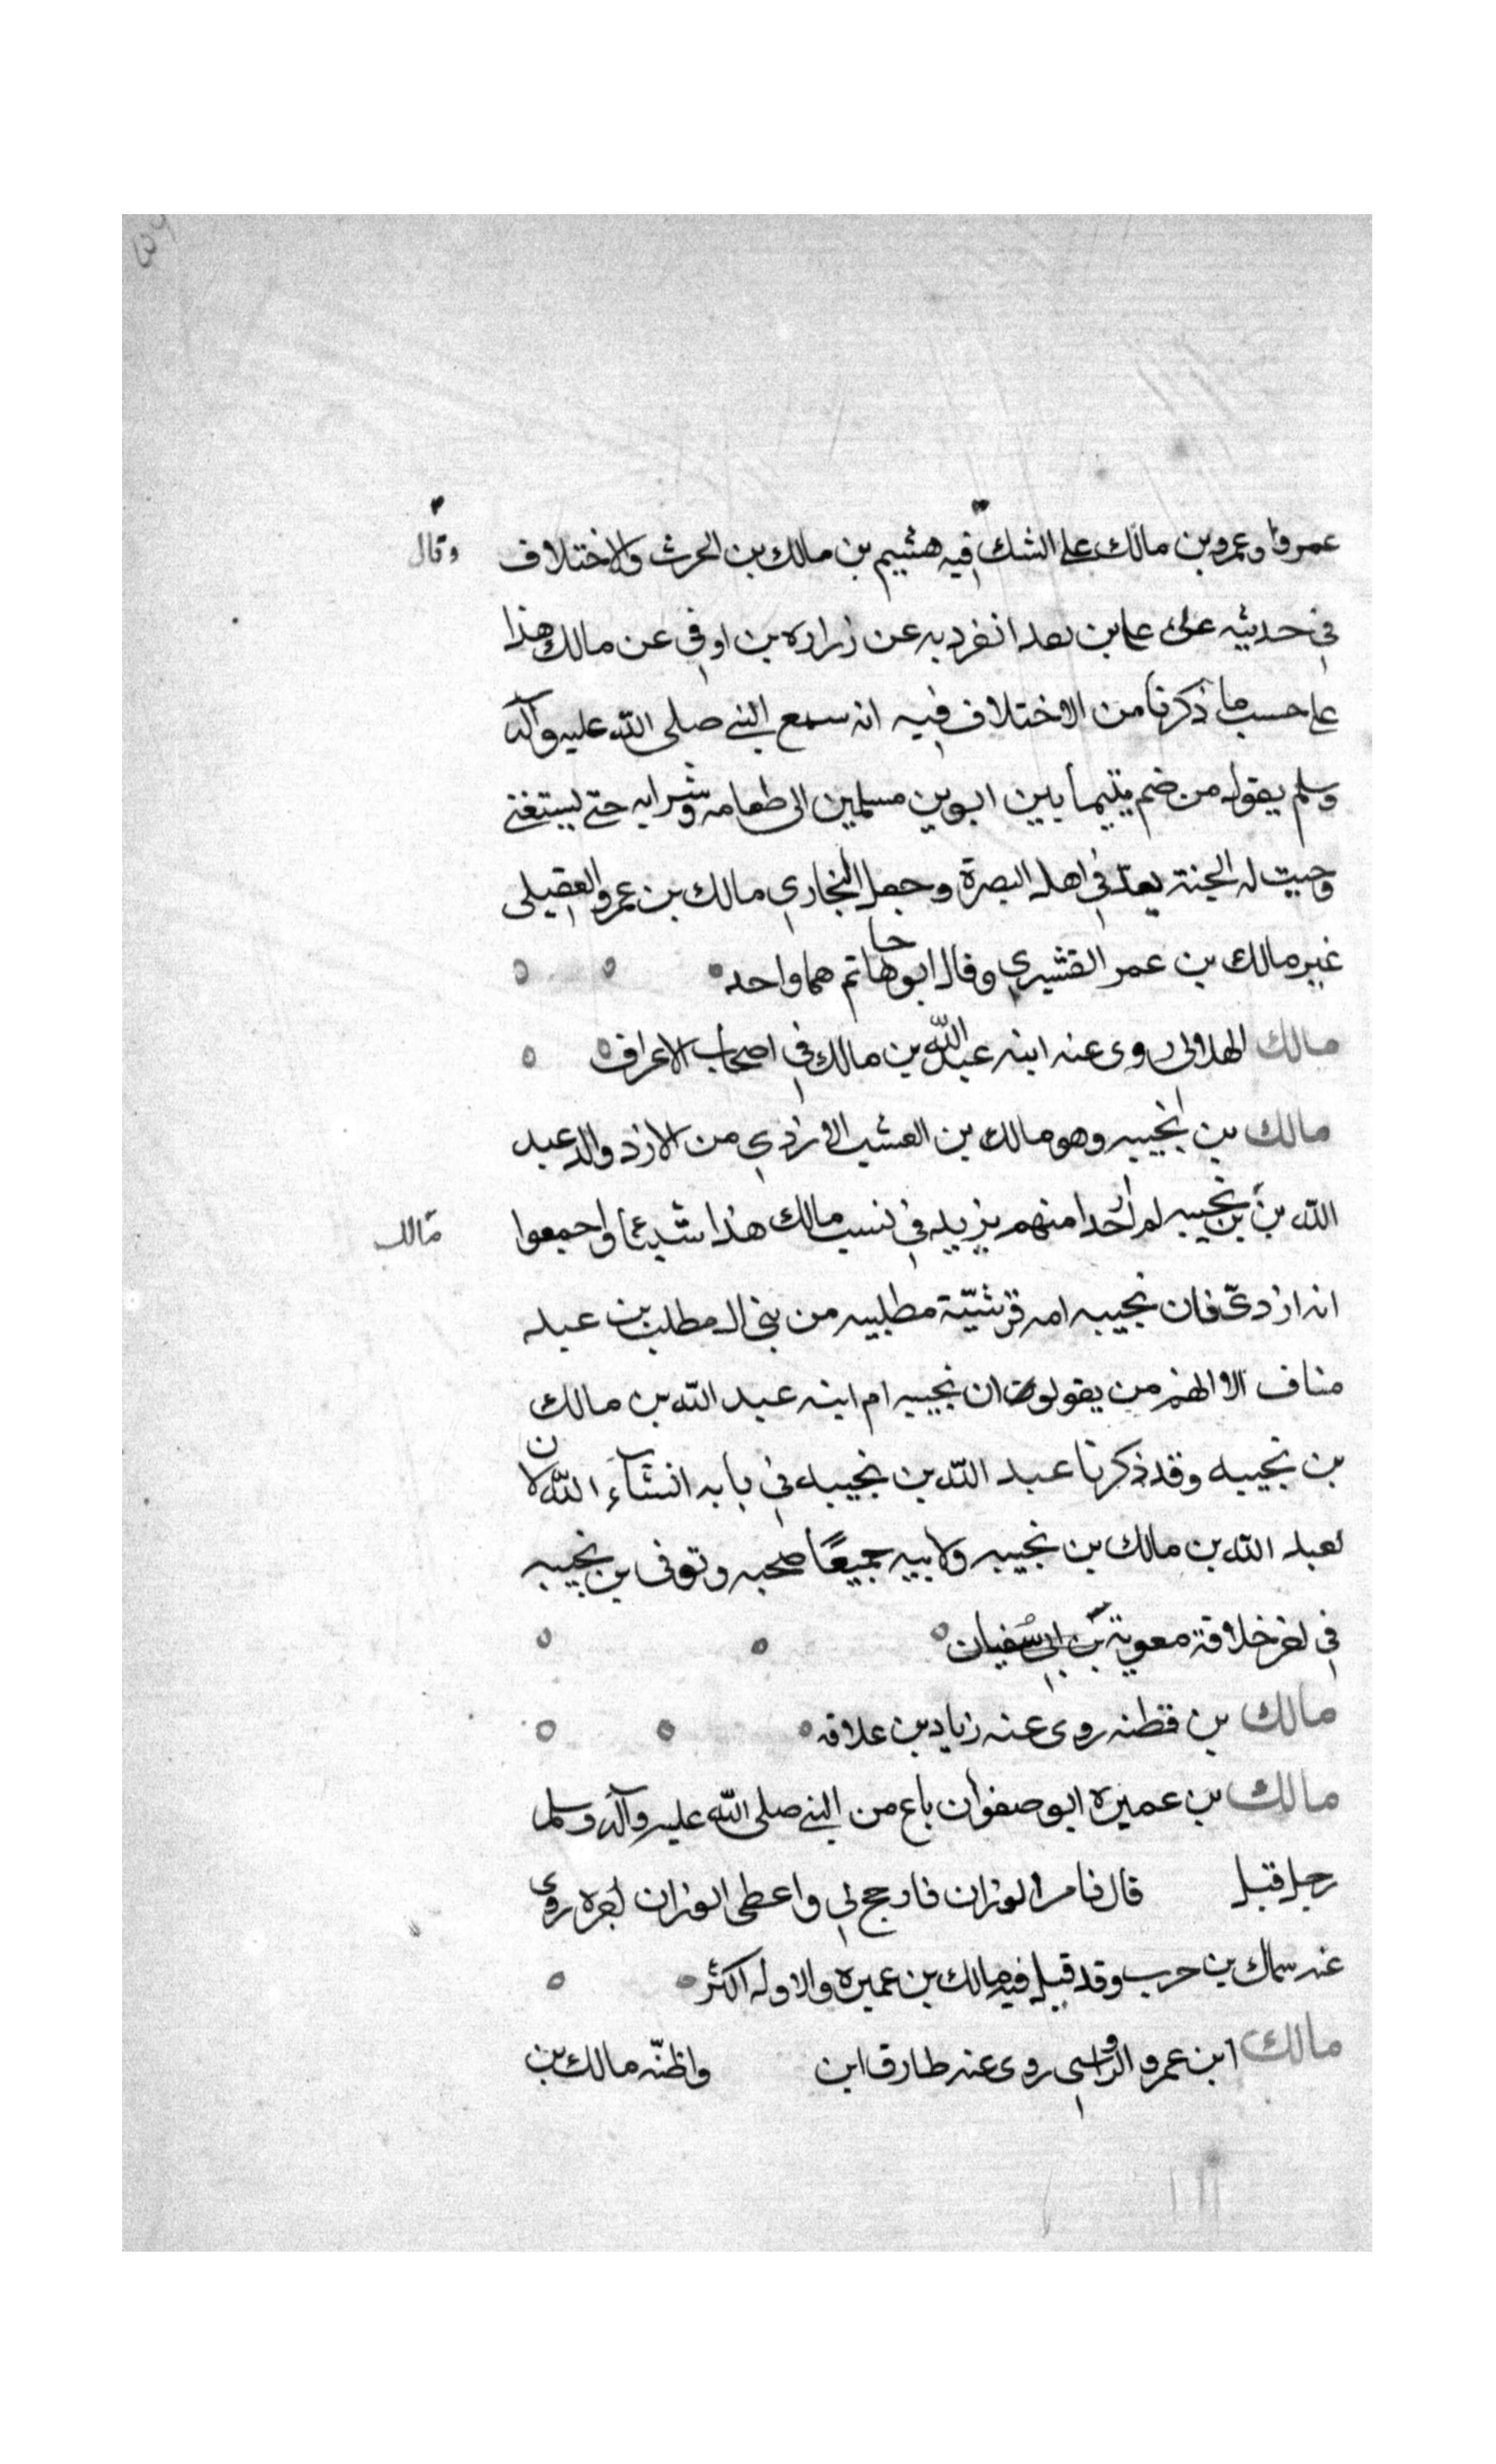 عمرو او عمرو بن مالك على الشك فيه هشيم بن مالك بن الحرث والاختلاف وقال
في حديثه على علي بن بعد انفرد به عن زراره بن اوفى عن مالك هذا
على حسب ما ذكرنا من الاختلاف فيه انه سمع النبي صلى الله عليه وآله
وسلم يقول من ضم يتيما بين ابوين مسلمين الى طعامه وشرابه حتى يستغني
وجبت له الجنة يعد في اهل البصرة وجعل البخاري مالك بن عمرو العقيلي
غير مالك بن عمر القشيري وقال ابو حاتم هما واحد
مالك الهلالي روى عنه ابنه عبد الله بن مالك في اصحاب الاعراف
مالك بن بجيبه وهو مالك بن القشب الازدي من الازد والد عبد
الله بن بجيبه لم احدا منهم يزيد في نسب مالك هذا شيئا واجمعوا مالك
انه ازدي فان بجيبه امه قرشيّة مطلبيه من بني المطلب بن عبد
مناف الا الهم من يقولون ان بجيبه ام ابنه عبد الله بن مالك
بن بجيبه وقد ذكرنا عبد الله بن بجيبه في بابه انشاء الله لان
لعبد الله بن مالك بن بجيبه ولابيه جميعًا صحبه وتوفى بن بجيبه
في اخر خلافة معوية بن ابي سفيان
مالك بن قطنه روى عنه زياد بن علاقه
مالك بن عميره ابو صفوان باع من النبي صلى الله عليه وآله وسلم
رجل قبل قال فامر الوزان فارجح لي واعطى الوزان اجره روى
عنه سماك بن حرب وقد قيل فيه مالك بن عميره والاول اكثر
مالك ابن عمرو الرواسي روى عنه طارق ابن واظنّه مالك بن